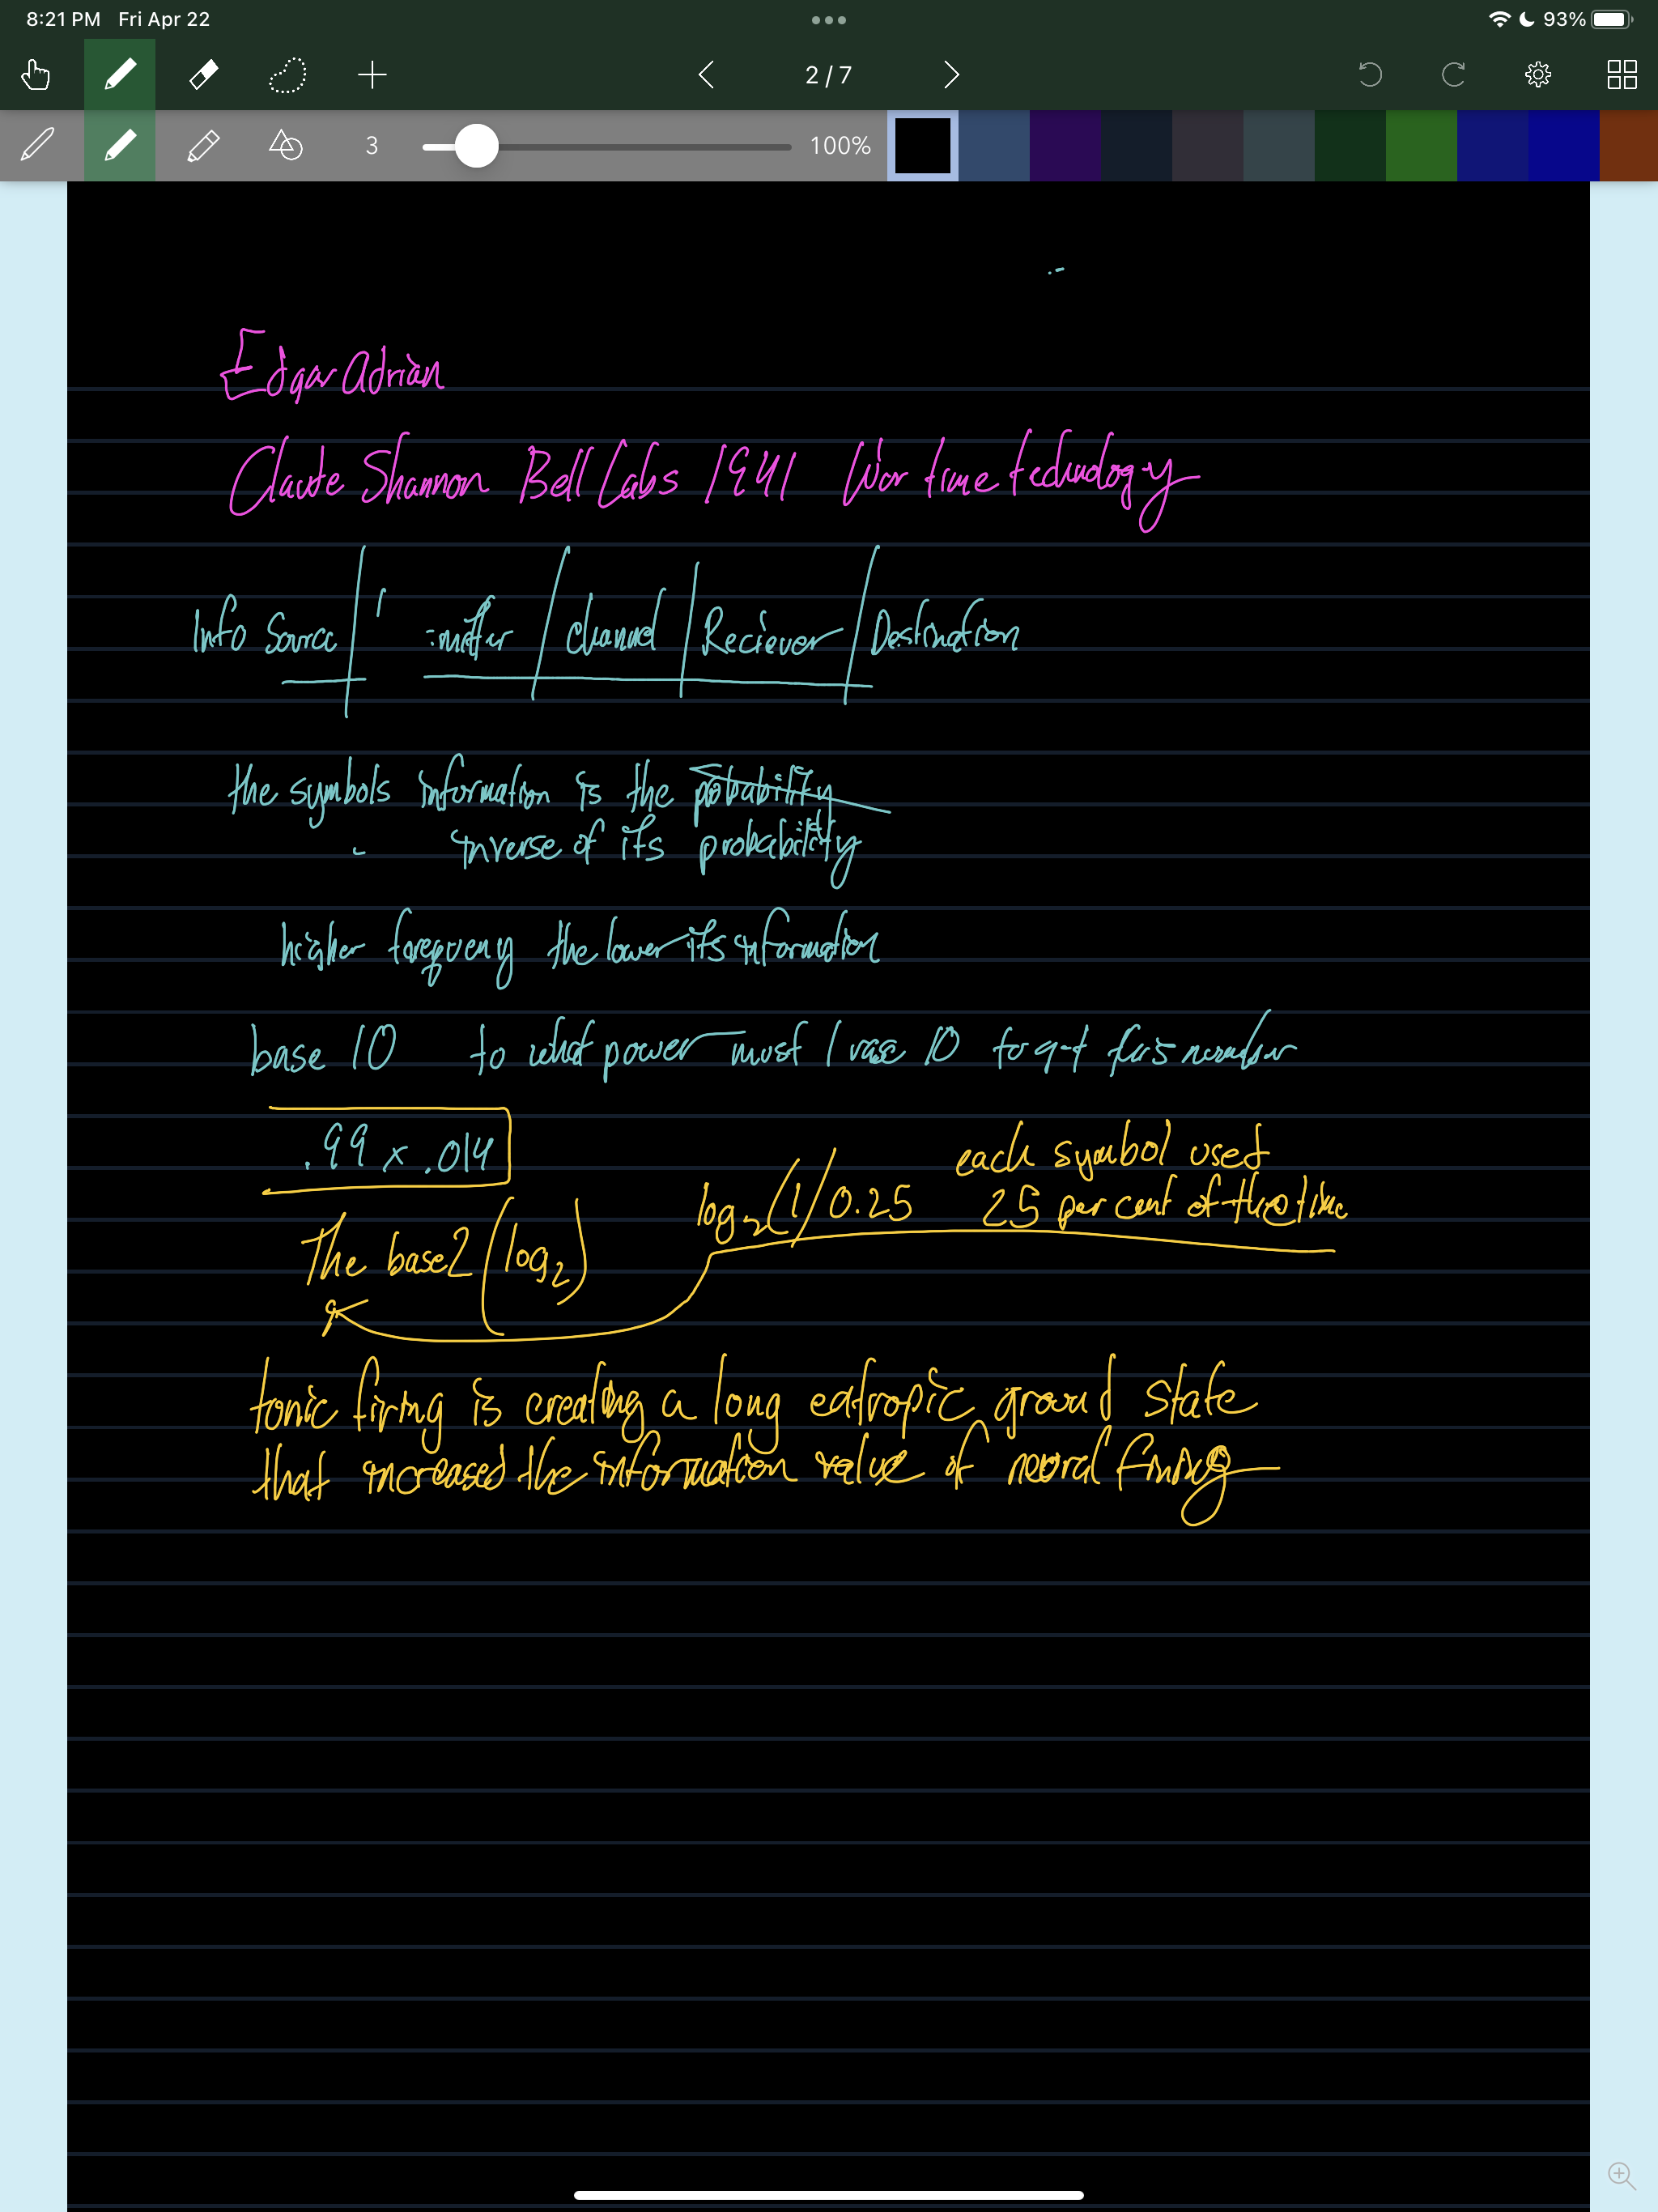 8:21 PM Fri Apr 22
93%
2/7
3 100%
Edgar Adrian
Claude Shannon Bell Labs 1941 War time technology
Info Source / :mitter / Channel / Reciever / Destination
the symbols information is the probability
inverse of its probability
higher the lower its information
base 10 to what power must I 10 to get this number
.99 x .014
each symbol used
log₂(1/0.25 25 per cent of the time
The base2 (log₂)
tonic firing is creating a long entropic ground state
that increased the information value of neural firing